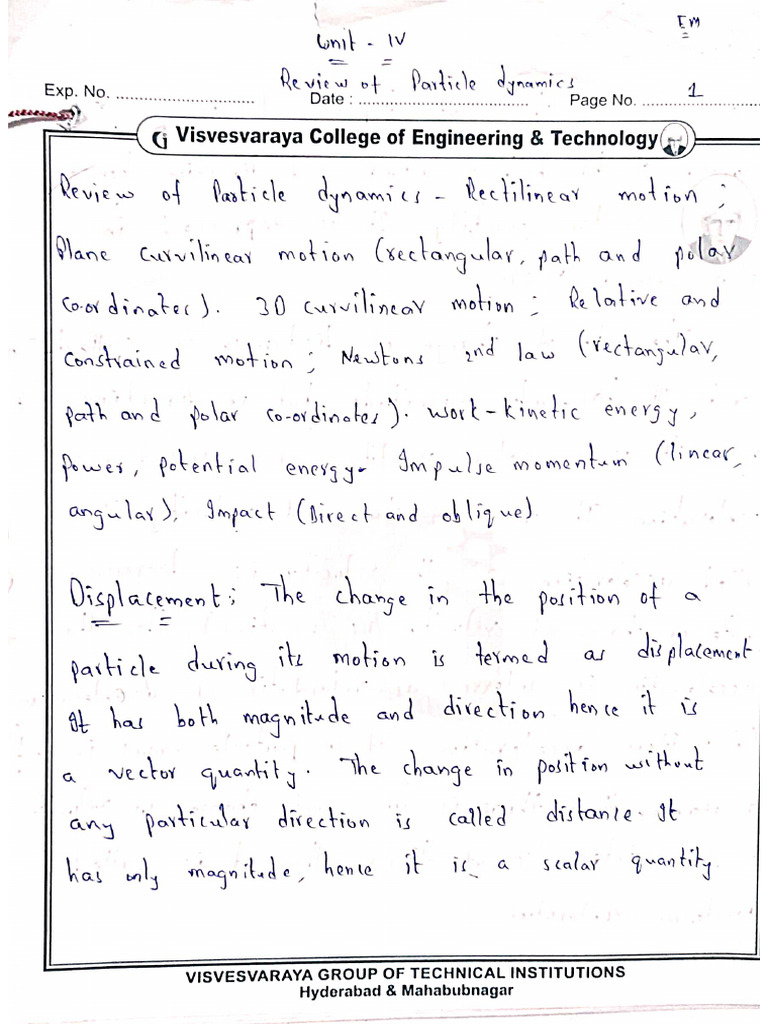 EM
Unit - IV
Review of Particle dynamics
Exp. No. ............................ Date : .................................. Page No. 1
Visvesvaraya College of Engineering & Technology
Review of Particle dynamics - Rectilinear motion ;
Plane Curvilinear motion (rectangular, path and polar
co-ordinates). 3D curvilinear motion ; Relative and
constrained motion ; Newtons 2nd law (rectangular,
path and polar co-ordinates). Work-kinetic energy,
Power, potential energy. Impulse momentum (linear,
angular), Impact (Direct and oblique)
Displacement ; The change in the position of a
particle during its motion is termed as displacement
It has both magnitude and direction hence it is
a vector quantity. The change in position without
any particular direction is called distance. It
has only magnitude, hence it is a scalar quantity
VISVESVARAYA GROUP OF TECHNICAL INSTITUTIONS
Hyderabad & Mahabubnagar